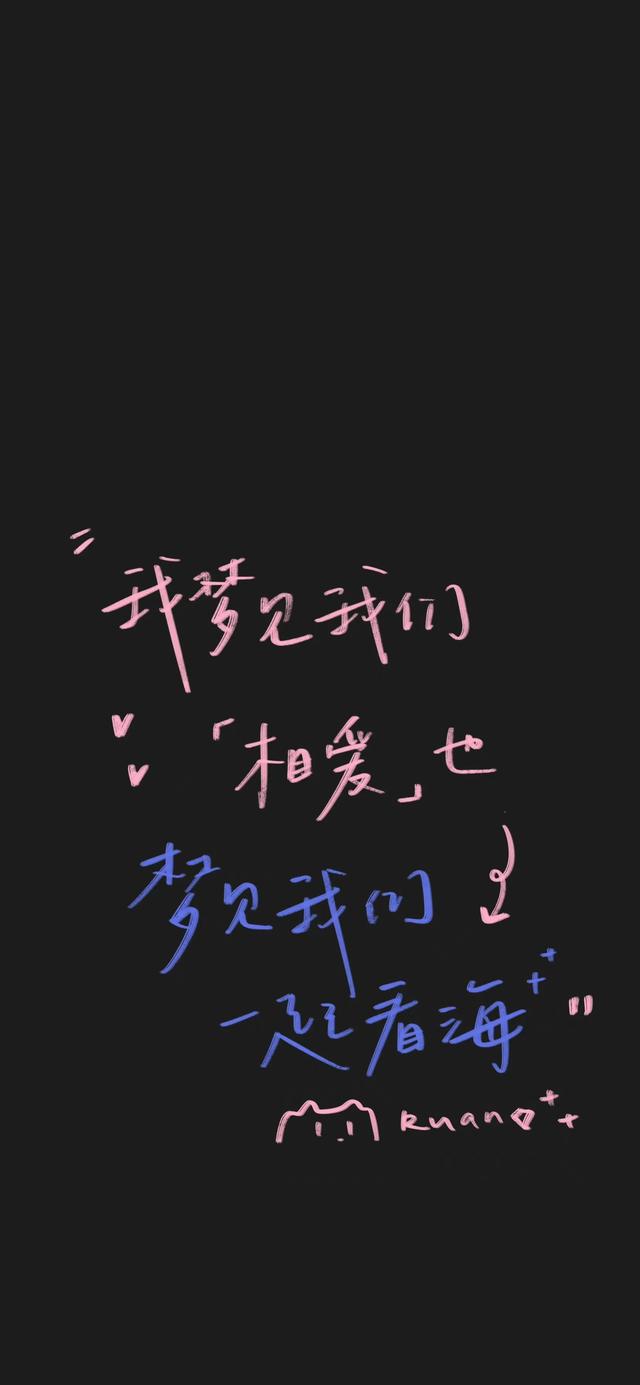 "我梦见我们
「相爱」也
梦见我们
一起看海"
Ruan